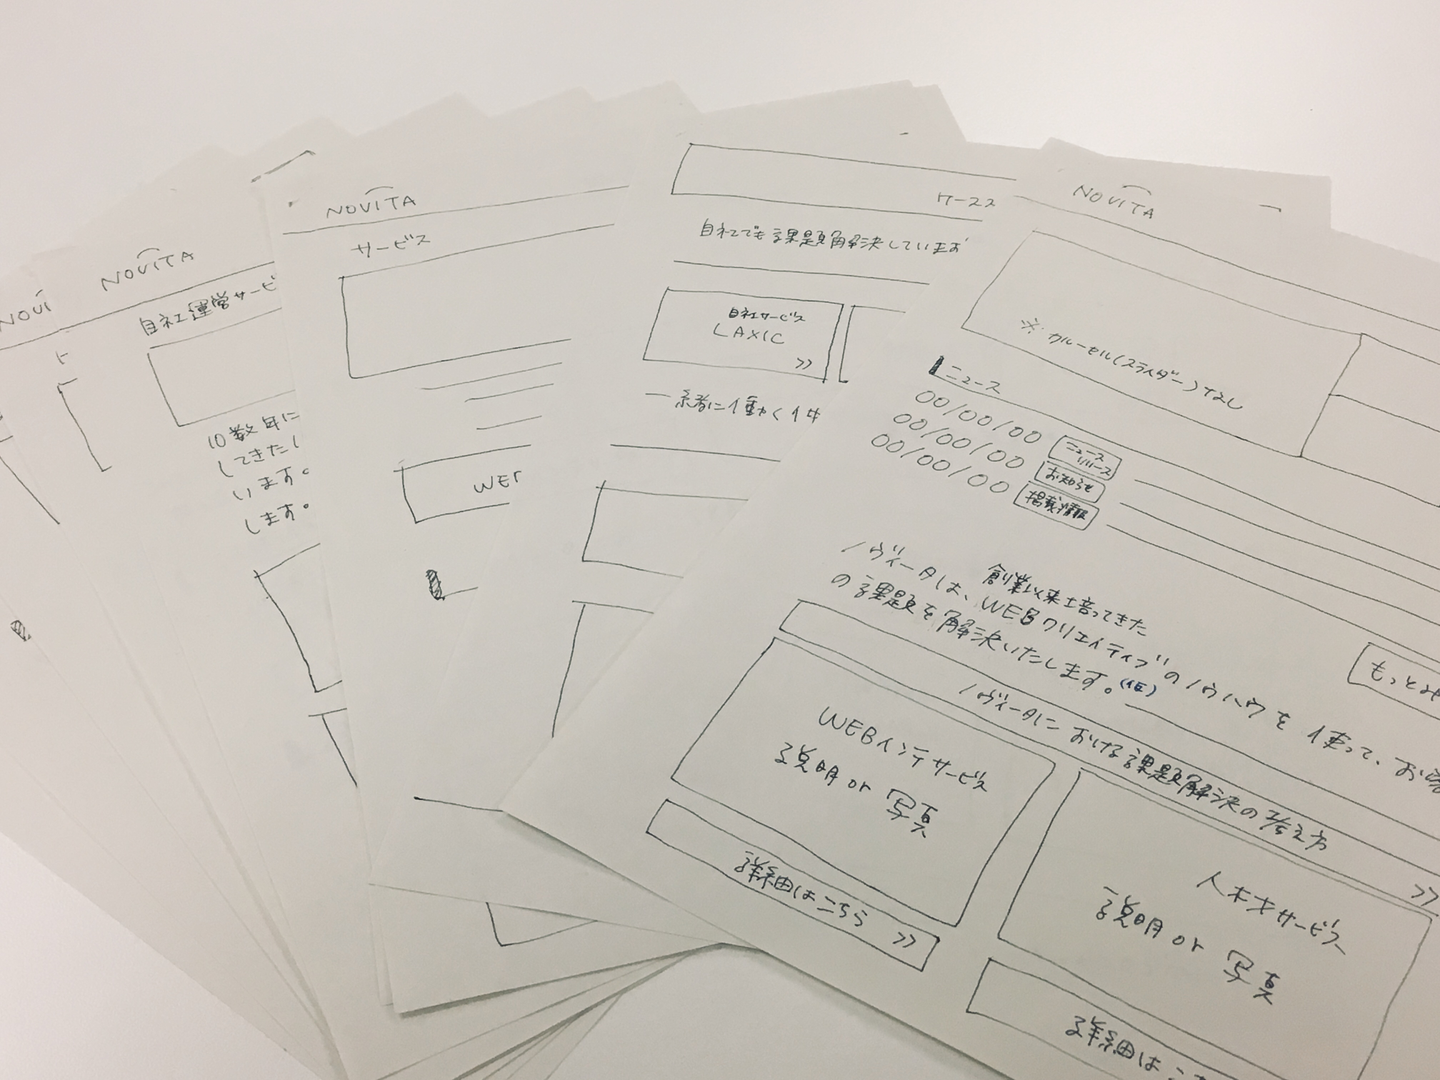 NOVI
NOVITA
自社運営サービ
10数年に
してきた
います。
します。
NOVITA
サービス
WEB
ケース
自社でも課題解決しています
自社サービス
LAXIC
>>
一緒に働く仲
NOVITA
※カルーセル(スライダー)なし
ニュース
00/00/00 ニュースリリース
00/00/00 お知らせ
00/00/00 掲載情報
もっとみ
創業以来培ってきた
ノヴィータは、WEBクリエイティブのノウハウを使って、お客
の課題を解決いたします。(仮)
ノヴィータにおける課題解決の考え方
>>
WEBインテサービス
説明or写真
詳細はこちら >>
人材サービス
説明or写真
詳細はこち